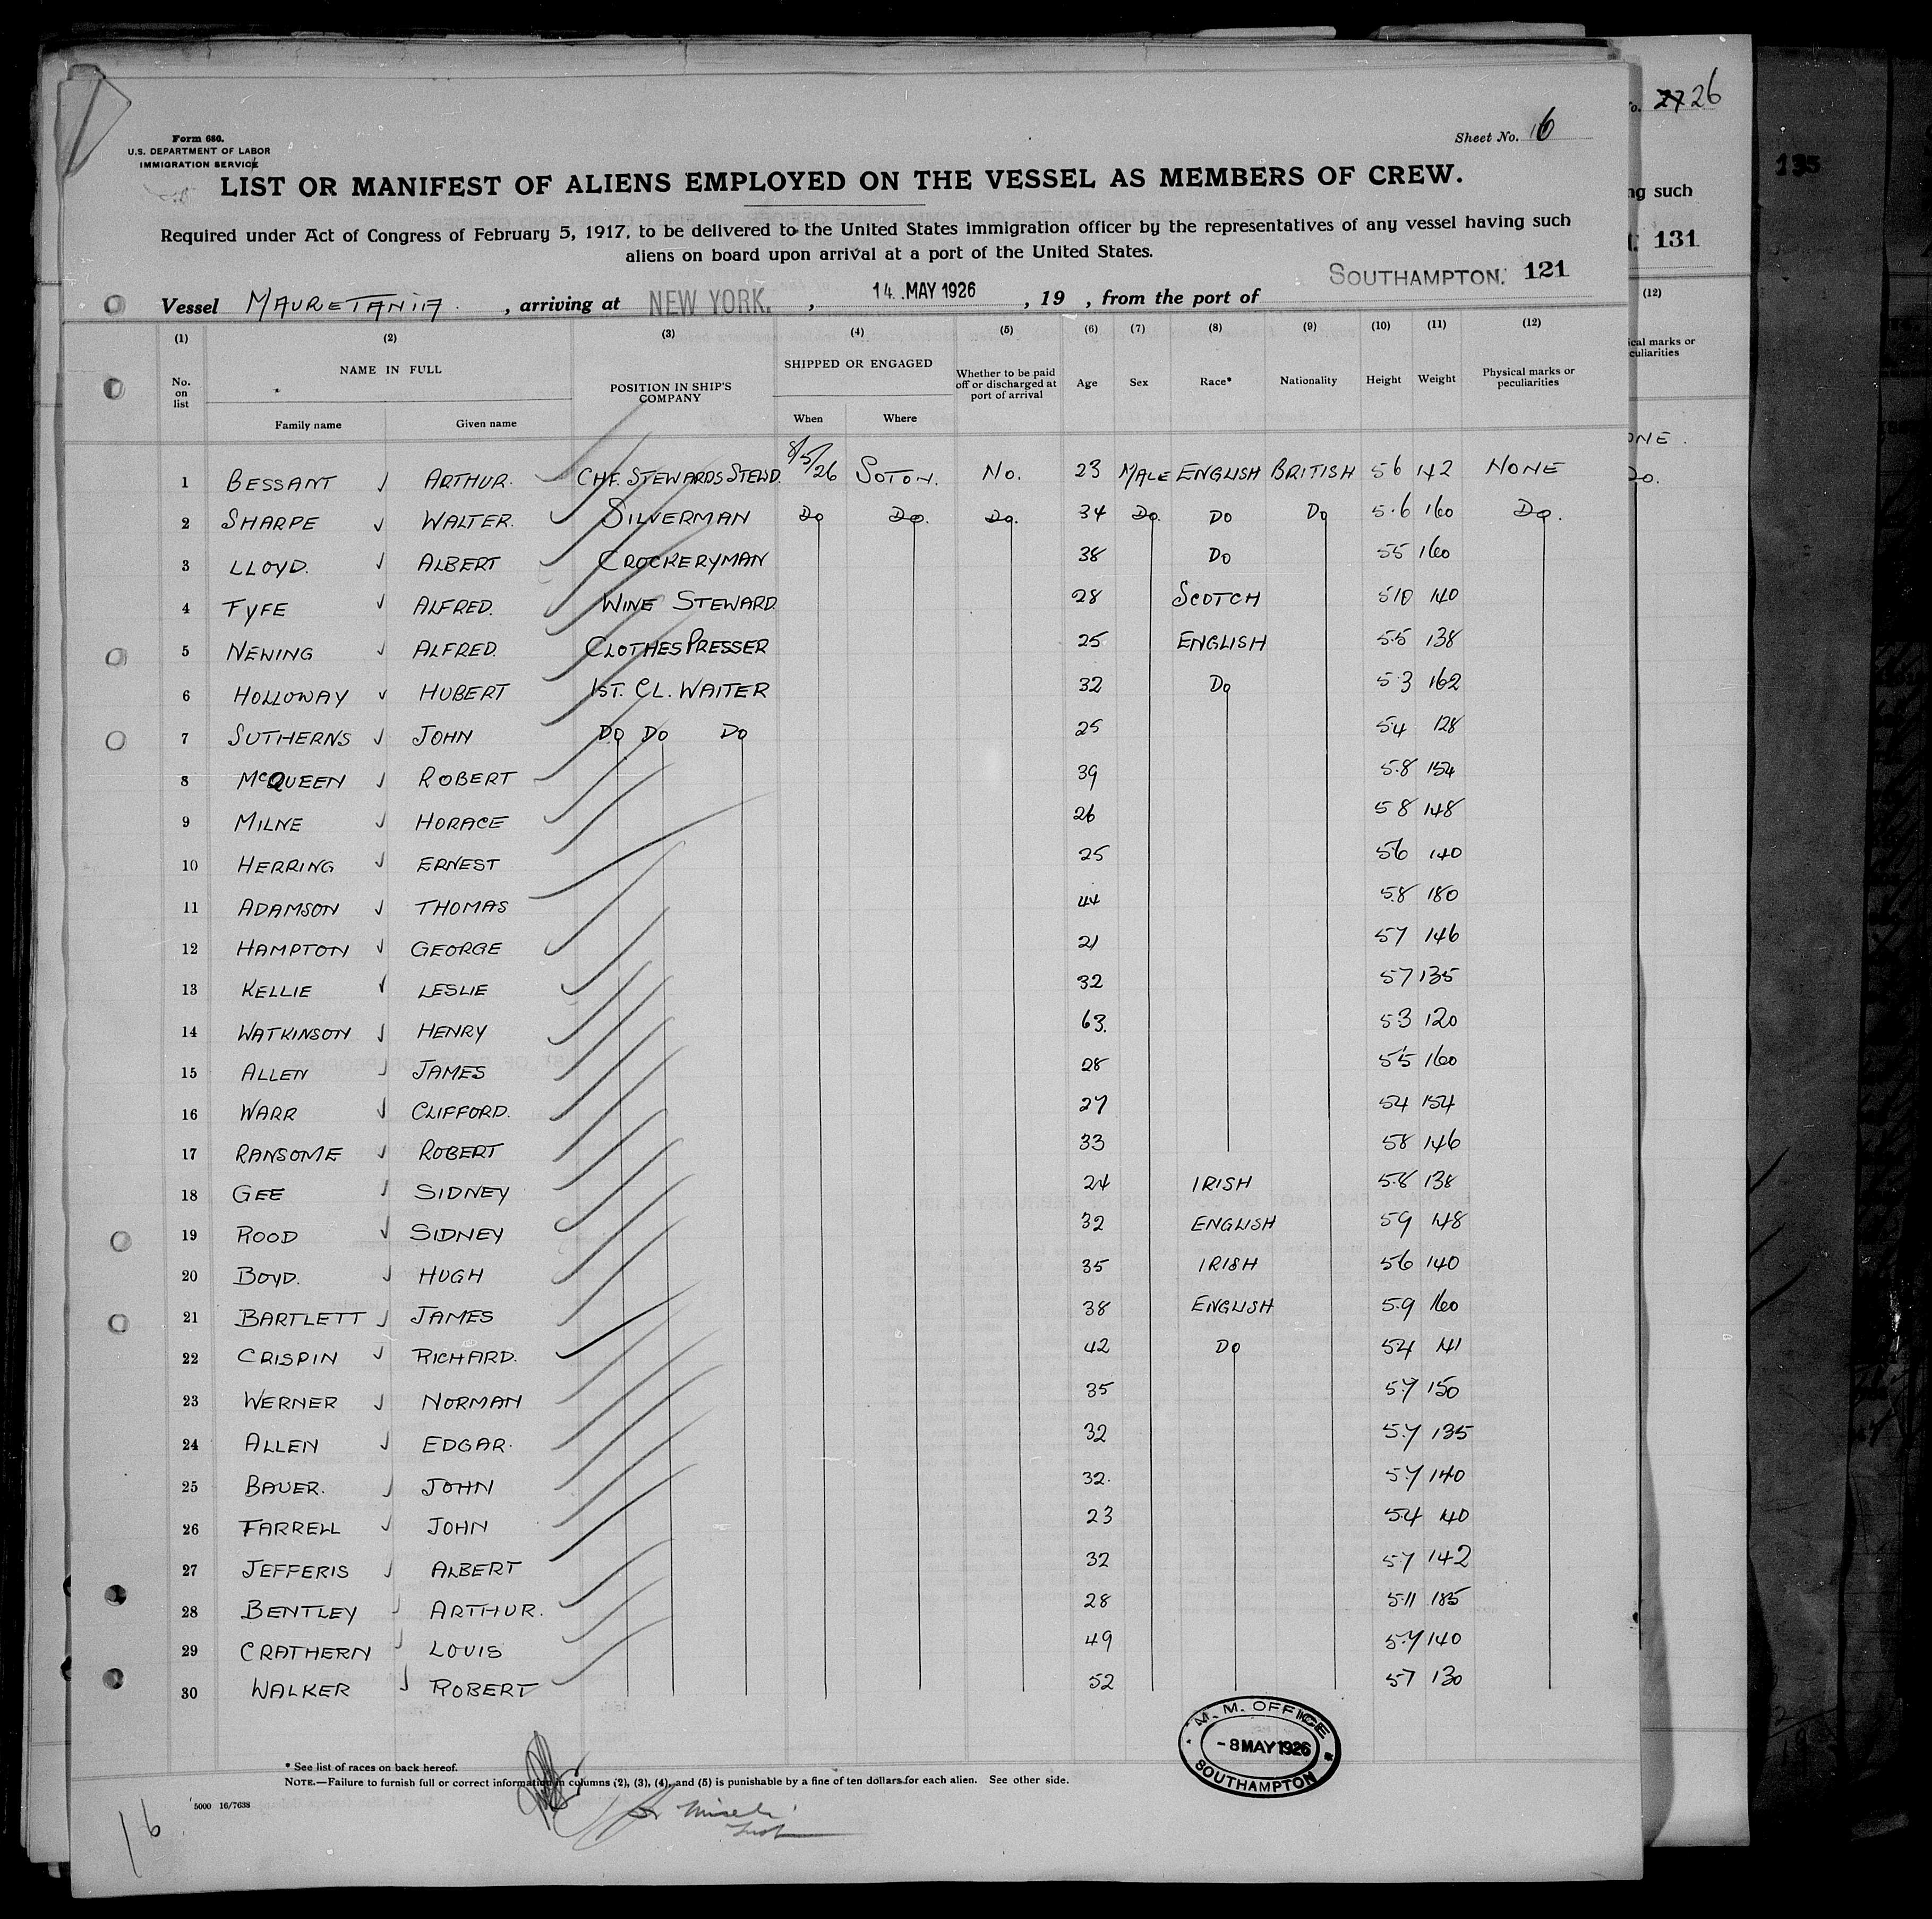 Form 680.
U.S. DEPARTMENT OF LABOR
IMMIGRATION SERVICE
Sheet No. 16
LIST OR MANIFEST OF ALIENS EMPLOYED ON THE VESSEL AS MEMBERS OF CREW.
Required under Act of Congress of February 5, 1917, to be delivered to the United States immigration officer by the representatives of any vessel having such
aliens on board upon arrival at a port of the United States.
SOUTHAMPTON. 121
Vessel MAURETANIA. , arriving at NEW YORK. , 14 MAY 1926 , 19 , from the port of
(1) (2) (3) (4) (5) (6) (7) (8) (9) (10) (11) (12)
No. on list NAME IN FULL POSITION IN SHIP'S COMPANY SHIPPED OR ENGAGED Whether to be paid off or discharged at port of arrival Age Sex Race* Nationality Height Weight Physical marks or peculiarities
Family name Given name When Where
1 BESSANT ARTHUR. CHF. STEWARDS STEWD. 8/5/26 SOTON. No. 23 MALE ENGLISH BRITISH 5 6 142 NONE
2 SHARPE WALTER. SILVERMAN Do Do. Do. 34 Do. Do Do 5.6 160 Do.
3 LLOYD. ALBERT CROCKERYMAN 38 Do 5 5 160
4 FYFE ALFRED. WINE STEWARD. 28 SCOTCH 5 10 140
5 NEWING ALFRED. CLOTHES PRESSER 25 ENGLISH 5.5 138
6 HOLLOWAY HUBERT 1ST. CL. WAITER 32 Do 5.3 162
7 SUTHERNS JOHN Do Do Do 25 5.4 128
8 McQUEEN ROBERT 39 5.8 154
9 MILNE HORACE 26 5 8 148
10 HERRING ERNEST 25 5.6 140
11 ADAMSON THOMAS 44 5.8 180
12 HAMPTON GEORGE 21 5 7 146
13 KELLIE LESLIE 32 5 7 135
14 WATKINSON HENRY 63. 5.3 120
15 ALLEN JAMES 28 5 5 160
16 WARR CLIFFORD. 27 5 4 154
17 RANSOME ROBERT 33 5 8 146
18 GEE SIDNEY 24 IRISH 5.8 138
19 ROOD SIDNEY 32 ENGLISH 5 9 148
20 BOYD. HUGH 35 IRISH 5 6 140
21 BARTLETT JAMES 38 ENGLISH 5.9 160
22 CRISPIN RICHARD. 42 Do 5 4 141
23 WERNER NORMAN 35 5.7 150
24 ALLEN EDGAR. 32 5.7 135
25 BAUER. JOHN 32. 5.7 140
26 FARRELL JOHN 23 5.4 140
27 JEFFERIS ALBERT 32 5.7 142
28 BENTLEY ARTHUR. 28 5.11 185
29 CRATHERN LOUIS 49 5.7 140
30 WALKER ROBERT 52 5 7 130
M. M. OFFICE
- 8 MAY 1926
SOUTHAMPTON
* See list of races on back hereof.
NOTE.—Failure to furnish full or correct information in columns (2), (3), (4), and (5) is punishable by a fine of ten dollars for each alien. See other side.
5000 16/7638
16
26
135
ng such
131
(12)
ical marks or
culiarities
ONE.
Do.